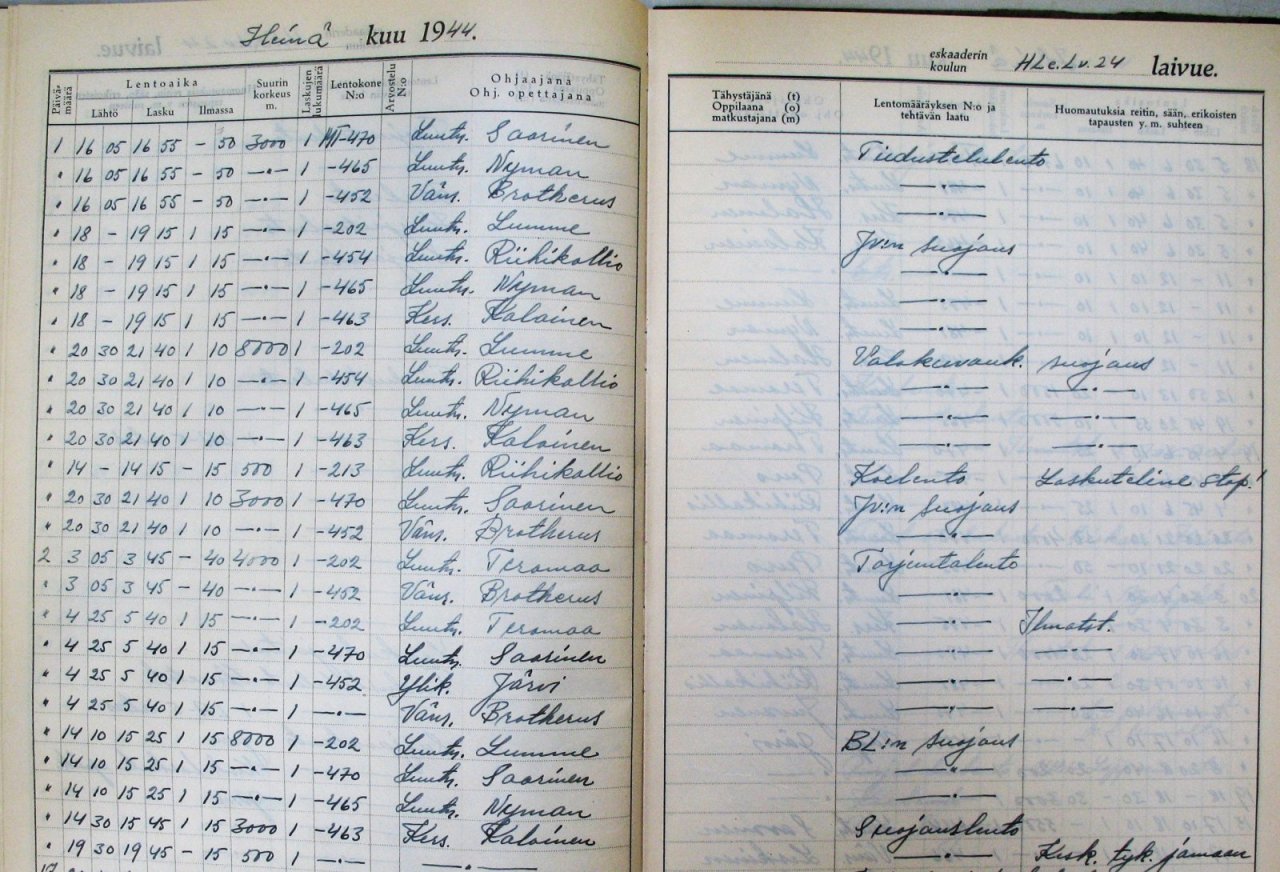 Heinä kuu 1944.
Päivä-määrä Lentoaika Lähtö Lasku Ilmassa Suurin korkeus m. Laskujen lukumäärä Lentokone N:o Arvostelu N:o Ohjaajana Ohj. opettajana
1 16 05 16 55 - 50 3000 1 MT-470 Luutn. Saarinen
" 16 05 16 55 - 50 —"— 1 -465 Luutn. Nyman
" 16 05 16 55 - 50 —"— 1 -452 Väns. Brotherus
" 18 - 19 15 1 15 —"— 1 -202 Luutn. Lumme
" 18 - 19 15 1 15 —"— 1 -454 Luutn. Riihikallio
" 18 - 19 15 1 15 —"— 1 -465 Luutn. Nyman
" 18 - 19 15 1 15 —"— 1 -463 Kers. Kalainen
" 20 30 21 40 1 10 8000 1 -202 Luutn. Lumme
" 20 30 21 40 1 10 —"— 1 -454 Luutn. Riihikallio
" 20 30 21 40 1 10 —"— 1 -465 Luutn. Nyman
" 20 30 21 40 1 10 —"— 1 -463 Kers. Kalainen
" 14 - 14 15 - 15 500 1 -213 Luutn. Riihikallio
" 20 30 21 40 1 10 3000 1 -470 Luutn. Saarinen
" 20 30 21 40 1 10 —"— 1 -452 Väns. Brotherus
2 3 05 3 45 - 40 4000 1 -202 Luutn. Teromaa
" 3 05 3 45 - 40 —"— 1 -452 Väns. Brotherus
" 4 25 5 40 1 15 —"— 1 -202 Luutn. Teromaa
" 4 25 5 40 1 15 —"— 1 -470 Luutn. Saarinen
" 4 25 5 40 1 15 —"— 1 -452 Ylik. Järvi
" 4 25 5 40 1 15 —"— 1 —"— Väns. Brotherus
" 14 10 15 25 1 15 8000 1 -202 Luutn. Lumme
" 14 10 15 25 1 15 —"— 1 -470 Luutn. Saarinen
" 14 10 15 25 1 15 —"— 1 -465 Luutn. Nyman
" 14 30 15 45 1 15 3000 1 -463 Kers. Kalainen
" 19 30 19 45 - 15 500 1 —"— —"—
eskaaderin koulun HLe.Lv.24 laivue.
Tähystäjänä (t) Oppilaana (o) matkustajana (m) Lentomääräyksen N:o ja tehtävän laatu Huomautuksia reitin, sään, erikoisten tapausten y. m. suhteen
Tiedustelulento
—"—
—"—
Jv:n suojaus
—"—
—"—
—"—
Valokuvauk. suojaus
—"— —"—
—"— —"—
—"— —"—
Koelento Laskuteline stop!
Jv:n suojaus
—"—
Torjuntalento
—"—
—"— Ilmatst.
—"— —"—
—"— —"—
—"— —"—
BL:n suojaus
—"—
—"—
Suojauslento
—"— Kesk. tyk. jamaan